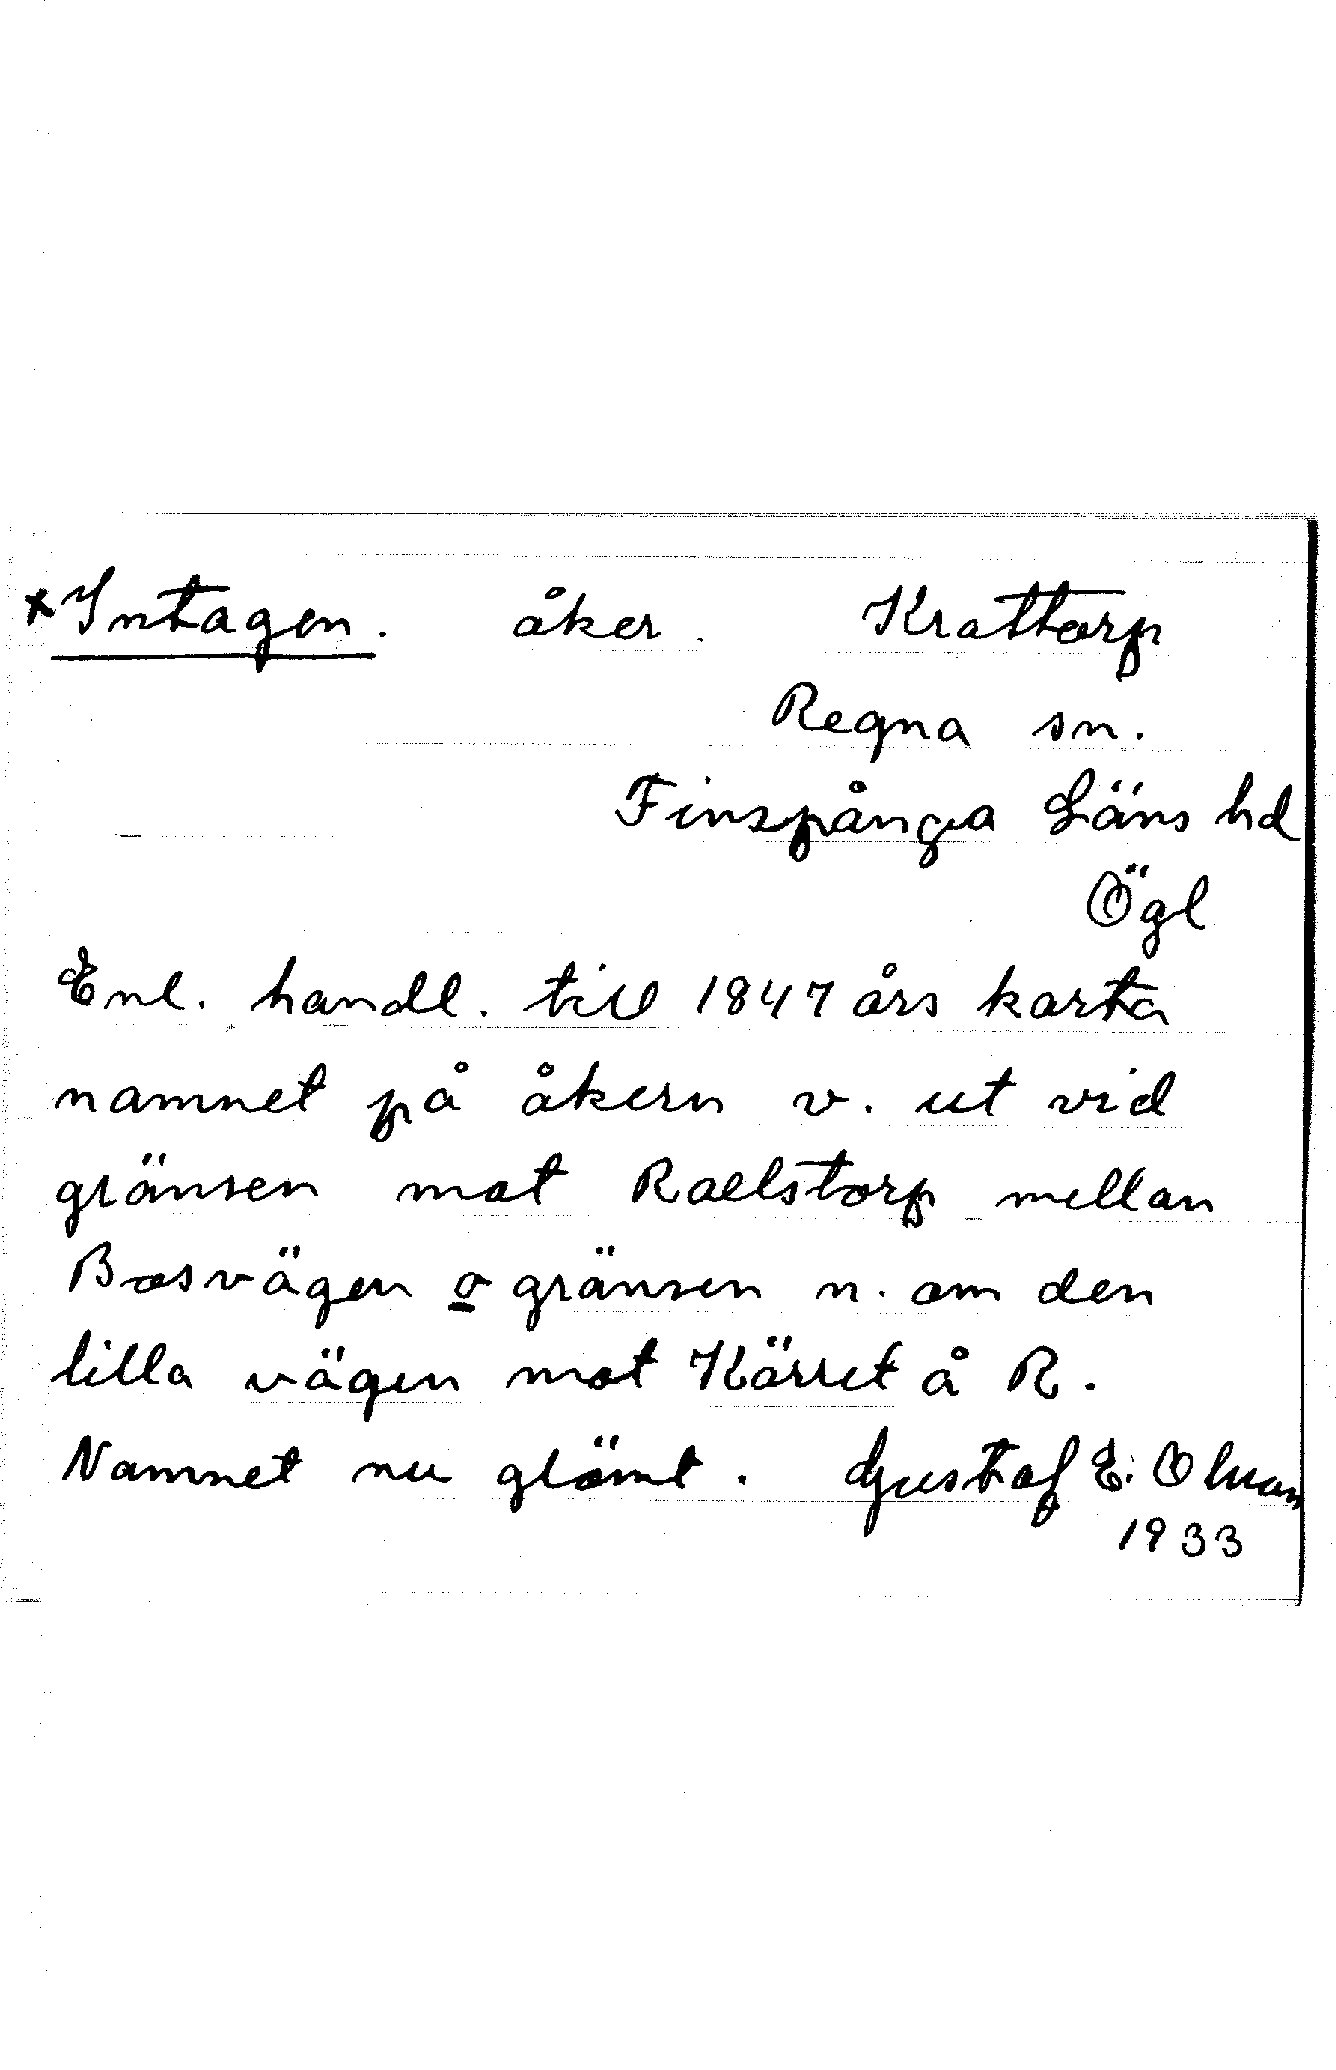 *Intagen. åker. Krattorp
Regna sn.
Finspånga Läns hd
Ögl
Enl. handl. till 1847 års karta
namnet på åkern v. ut vid
gränsen mot Roelstorp mellan
Bosvägen o gränsen n. om den
lilla vägen mot Kärret å R.
Namnet nu glömt. Gustaf E. Olman
1933